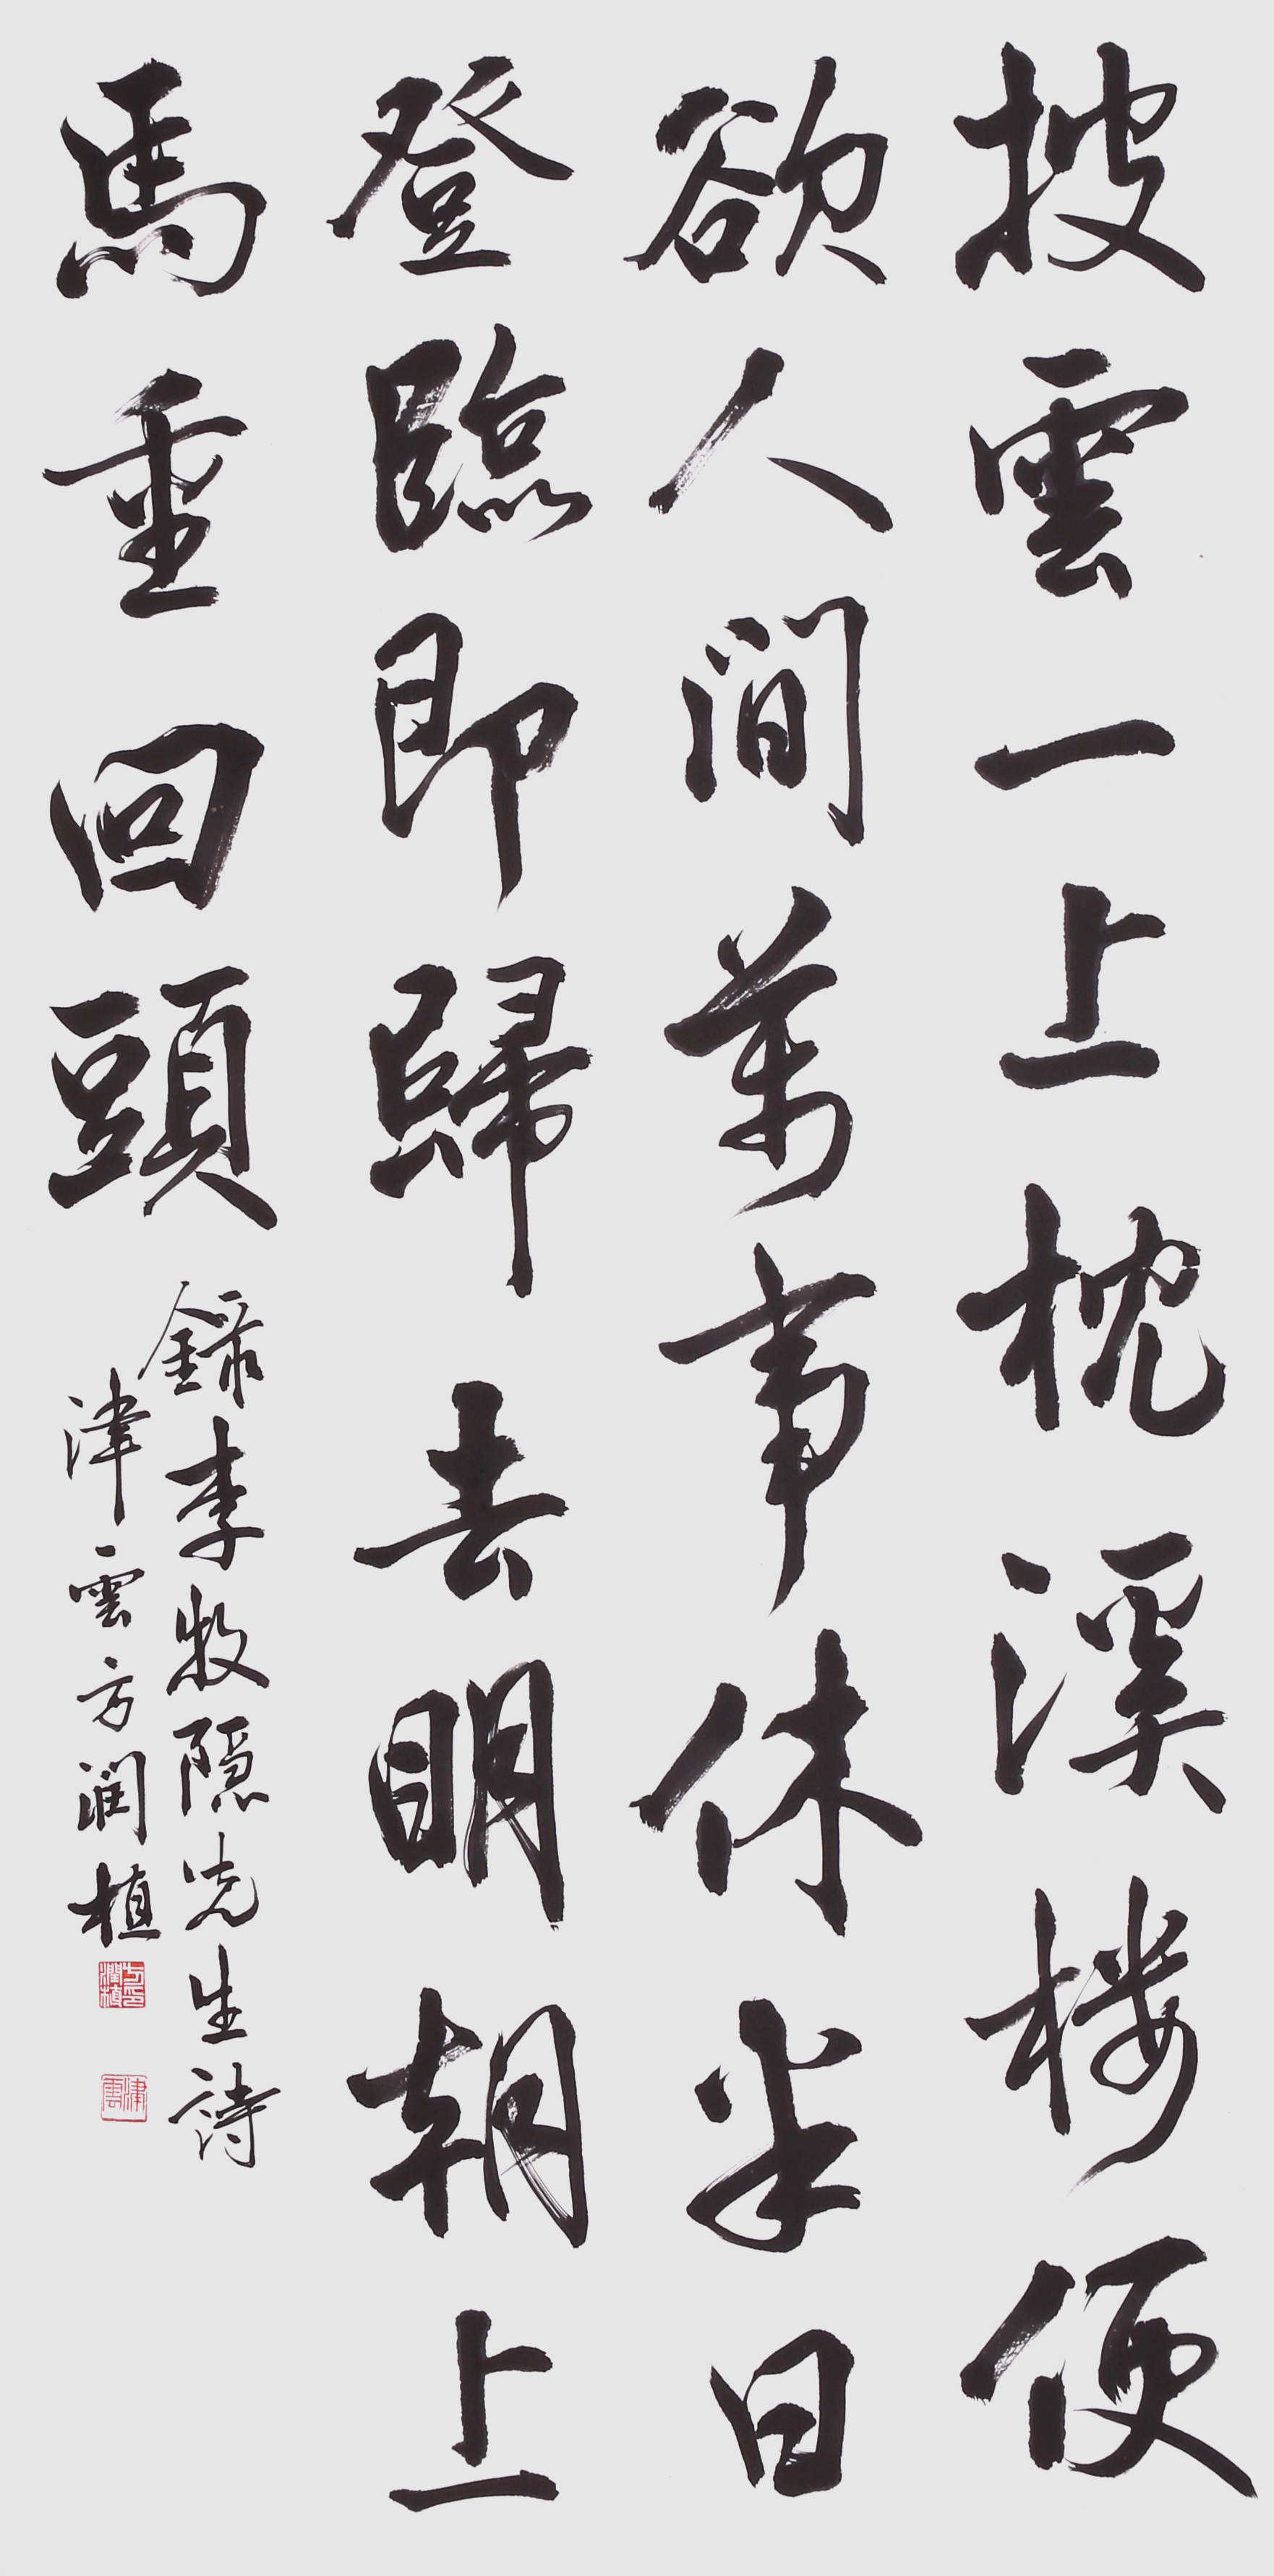 披雲一上枕溪樓便
欲人間萬事休半日
登臨即歸去明朝上
馬重回頭
錄李牧隱先生詩
津雲方潤植
方印潤植
津雲